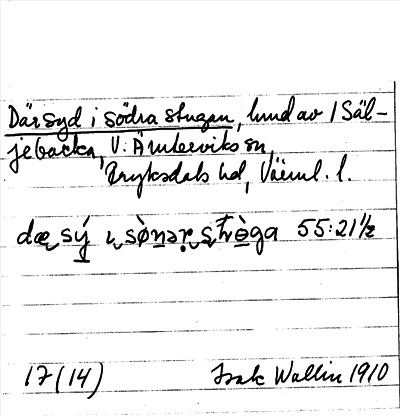 Där syd i södra stugan, hmd av 1 Säl-
jebacka, V. Ämterviks sn,
Fryksdals hd, Värml. l.
dæ sý ı sònər stròga 55:21½
17(14) Isak Wallin 1910